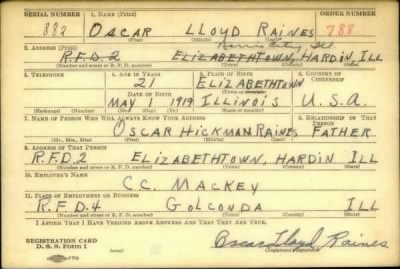 SERIAL NUMBER 1. NAME (Print) ORDER NUMBER
882 OSCAR LLOYD RAINES 788
(First) (Middle) (Last)
2. ADDRESS (Print)
R.F.D. 2 ELIZABETHTOWN, HARDIN, ILL
(Number and street or R. F. D. number) (Town) (County) (State)
3. TELEPHONE 4. AGE IN YEARS 5. PLACE OF BIRTH 6. COUNTRY OF CITIZENSHIP
21 ELIZABETHTOWN
DATE OF BIRTH (Town or county)
MAY 17 1919 ILLINOIS U.S.A.
(Exchange) (Number) (Mo.) (Day) (Yr.) (State or country)
7. NAME OF PERSON WHO WILL ALWAYS KNOW YOUR ADDRESS 8. RELATIONSHIP OF THAT PERSON
OSCAR HICKMAN RAINES FATHER
(Mr., Mrs., Miss) (First) (Middle) (Last)
9. ADDRESS OF THAT PERSON
R.F.D. 2 ELIZABETHTOWN, HARDIN ILL
(Number and street or R. F. D. number) (Town) (County) (State)
10. EMPLOYER'S NAME
C.C. MACKEY
11. PLACE OF EMPLOYMENT OR BUSINESS
R.F.D. 4 GOLCONDA ILL
(Number and street or R. F. D. number) (Town) (County) (State)
I AFFIRM THAT I HAVE VERIFIED ABOVE ANSWERS AND THAT THEY ARE TRUE.
REGISTRATION CARD
D. S. S. FORM 1
Oscar Lloyd Raines
(Registrant's signature)